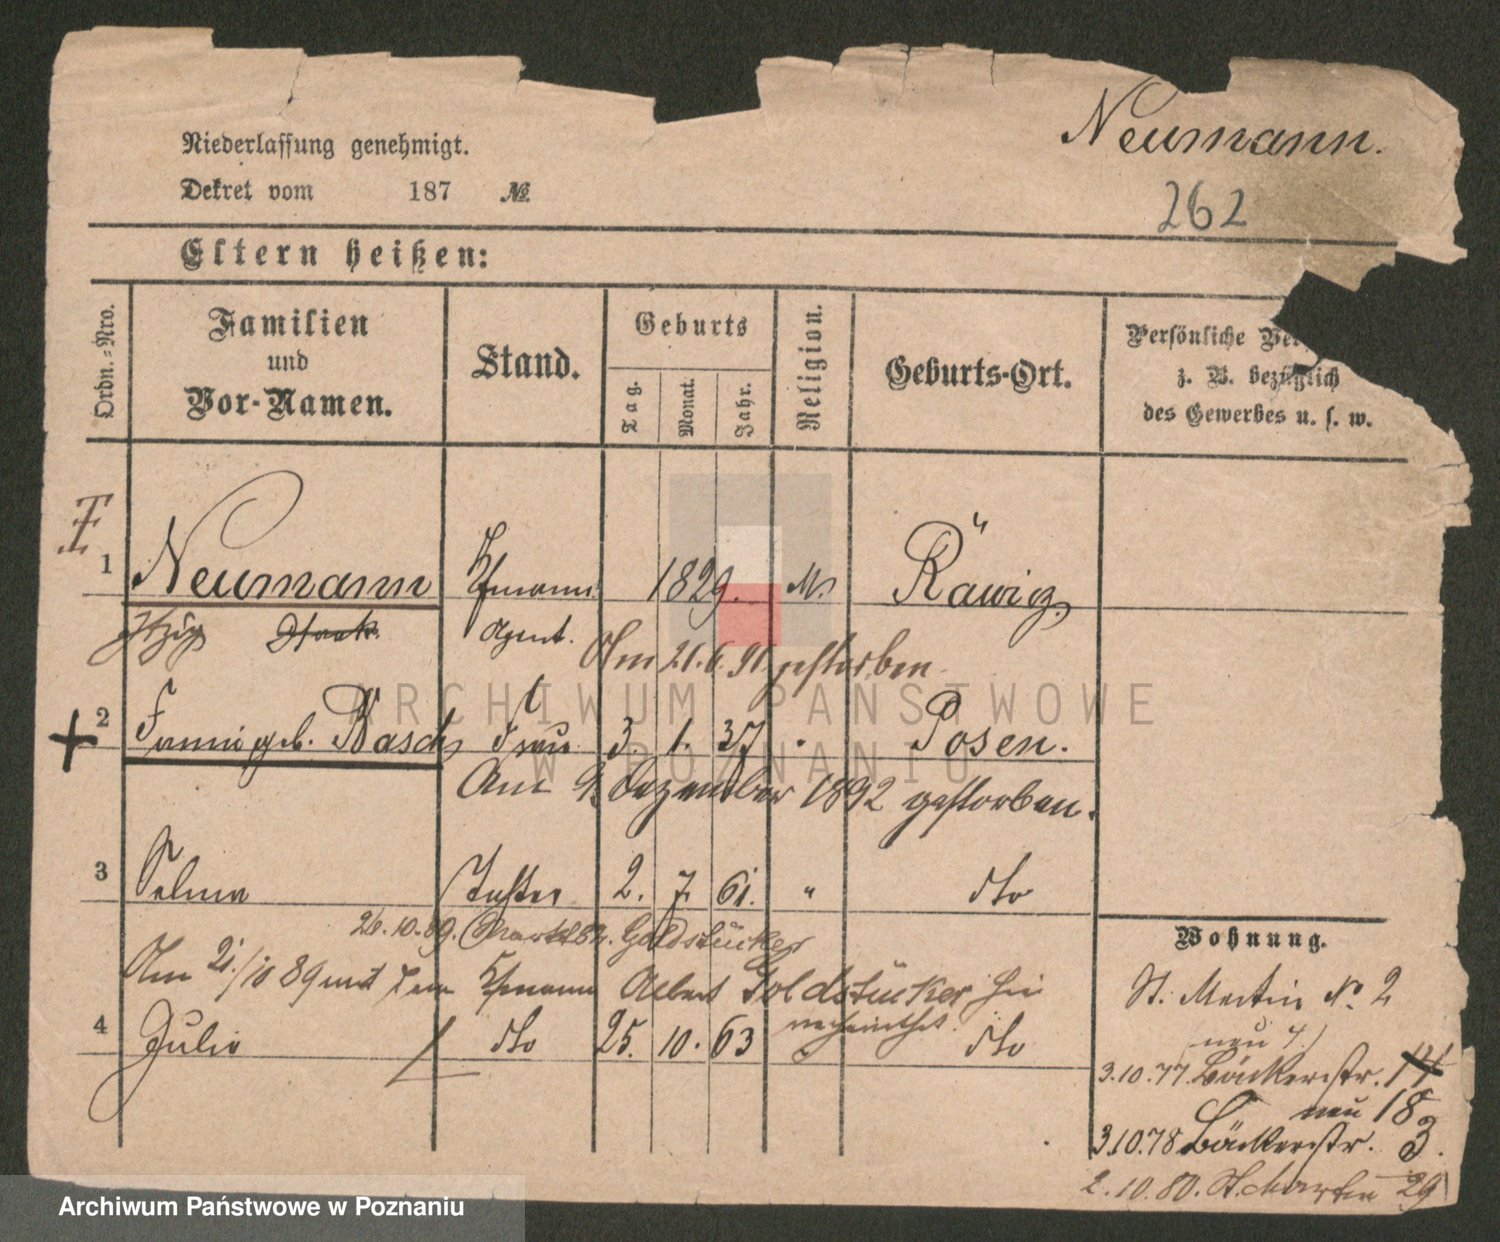 Neumann.
Niederlassung genehmigt.
Dekret vom 187 №
262
Eltern heißen:
Ordn.-Nro.
Familien und Vor-Namen.
Stand.
Geburts
Tag. Monat. Jahr.
Religion.
Geburts-Ort.
Persönliche Ver
z. B. bezüglich
des Gewerbes u. s. w.
1 Neumann Kfmann 1829. M. Rawicz
Itzig Isaak Agent.
Am 21.6.91 gestorben
2 Fanni geb. Basch Frau 3. 1. 37 Posen.
Am 9. Dezember 1892 gestorben.
3 Selma Tochter 2. 7. 61. " dto
26.10.89. Markt 82. Goldstücker
Am 21./10 89 mit dem Kfmann Albert Goldstücker hier
verheirathet.
4 Julie dto 25. 10. 63 dto
Wohnung.
St. Martin No. 2
neu 7.
3.10.77. Bäckerstr. 14
neu 18
3.10.78 Bäckerstr. 3.
2.10.80. St. Martin 29
ARCHIWUM PAŃSTWOWE
W POZNANIU
Archiwum Państwowe w Poznaniu